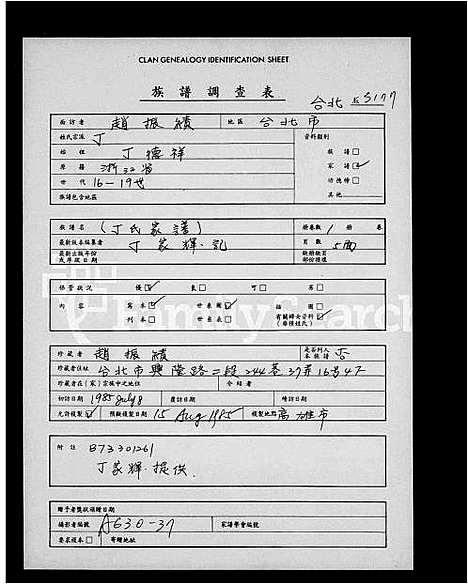 CLAN GENEALOGY IDENTIFICATION SHEET
族譜調查表
台北 5177
面訪者 趙振績 地區 台北市
姓氏宗派 丁 資料類別
始祖 丁德祥 族譜□
原籍 浙江省 家譜☑
世代 16-19世 功德榜□
族譜包含地區 其他
族譜名 (丁氏家譜) 冊卷數 1 冊 卷
最新版本編纂者 丁家輝.記 頁數 5面
最新出版年份或序跋日期
保管狀況 優☑ 良□ 可□ 劣□
內容 寫本☑ 世系圖☑ 插圖□
刊本□ 世系表□ 有關婦女資料☑(單種姓氏)
珍藏者 趙振績 是否列入本族譜 否
珍藏者住址 台北市興隆路二段244巷37弄16號4F
珍藏者在(家)宗族中之地位 介紹者
初訪日期 1985 July 8 覆訪日期 續訪日期
允許複製☑ 預擬複製日期 15 Aug 1985 複製地點 高雄市
附註 B73301261
丁家輝.提供.
贈予者獎狀頒贈日期
攝影者編號 A630-37 家譜學會編號
要求複本□ 寄贈地址
FamilySearch